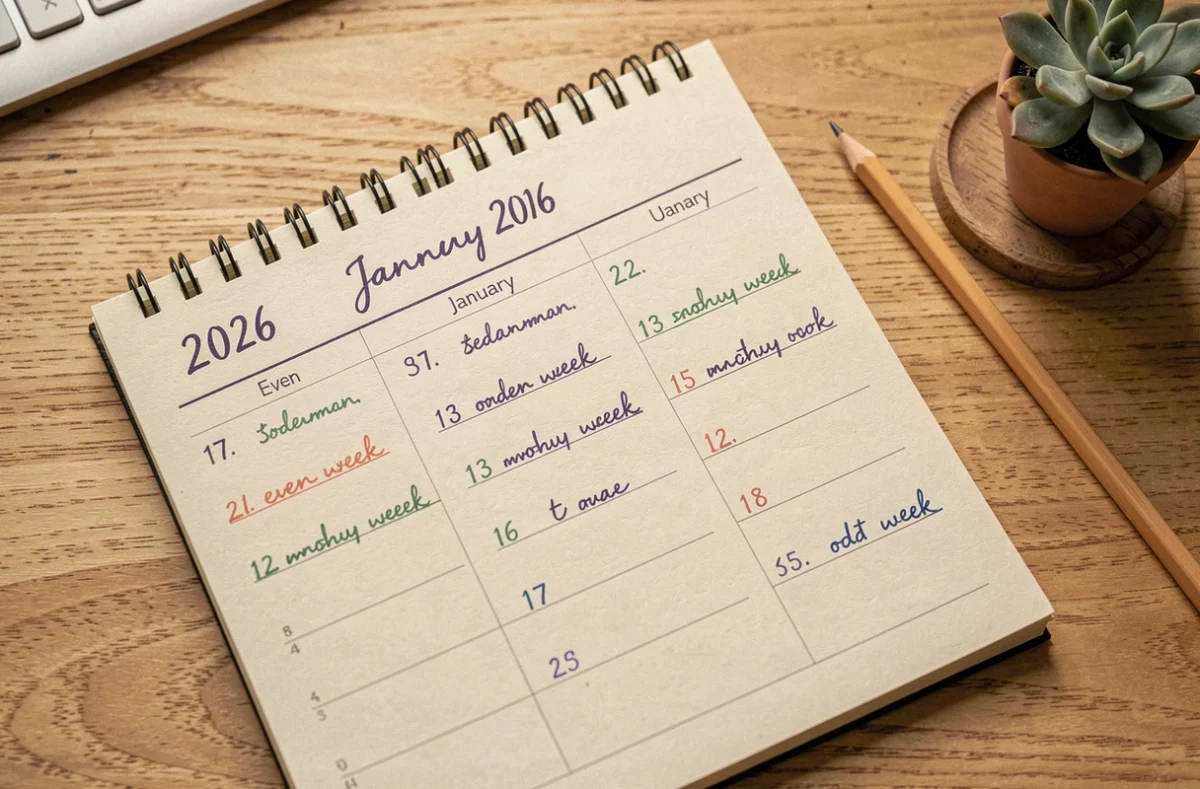 2026 Jannuy 2016
Even
17. Soderman.
21. even week
12 mnohuy weeek
8
4
4
3
January
37. Sedanman.
13 onden week
13 mnohuy wceek
16 t ouae
17
25
Uanary
22.
13 snohuy week
15 mnchuy ook
12.
18
35. odd week